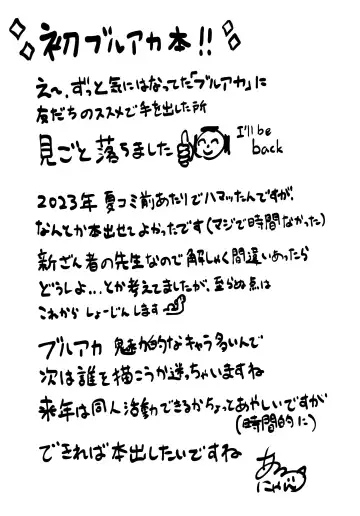 初ブルアカ本!!
え〜、ずっと気にはなってた「ブルアカ」に
友だちのススメで手を出した所
見ごと落ちました
I'll be
back
2023年 夏コミ前あたりでハマッたんですが、
なんとか本出せてよかったです(マジで時間なかった)
新ざん者の先生なので解しゃく間違いあったら
どうしよ...とか考えてましたが、至らぬ点は
これから しょーじんします
ブルアカ 魅力的なキャラ多いんで
次は誰を描こうか迷っちゃいますね
来年は同人活動できるかちょってあやしいですが
(時間的に)
できれば本出したいですね
あるにゃん